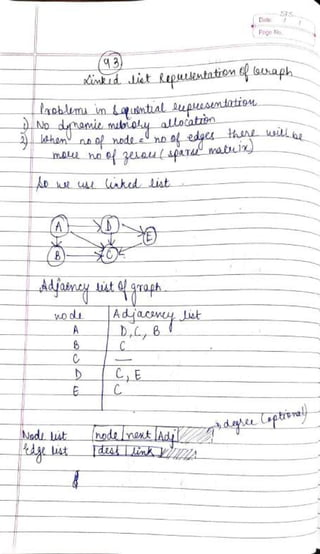 Date
Page No.
93)
Linked list Representation of Graph
Problems in Sequential representation
1) No dynamic memory allocation
2) When no of node = no of edges there will be
more no of zeroes (sparse matrix)
So we use linked list
A D E
B C
Adjacency list of graph
node Adjacency list
A D, C, B
B C
C —
D C, E
E C
Node list node next Adj degree (optional)
Edge list dest link